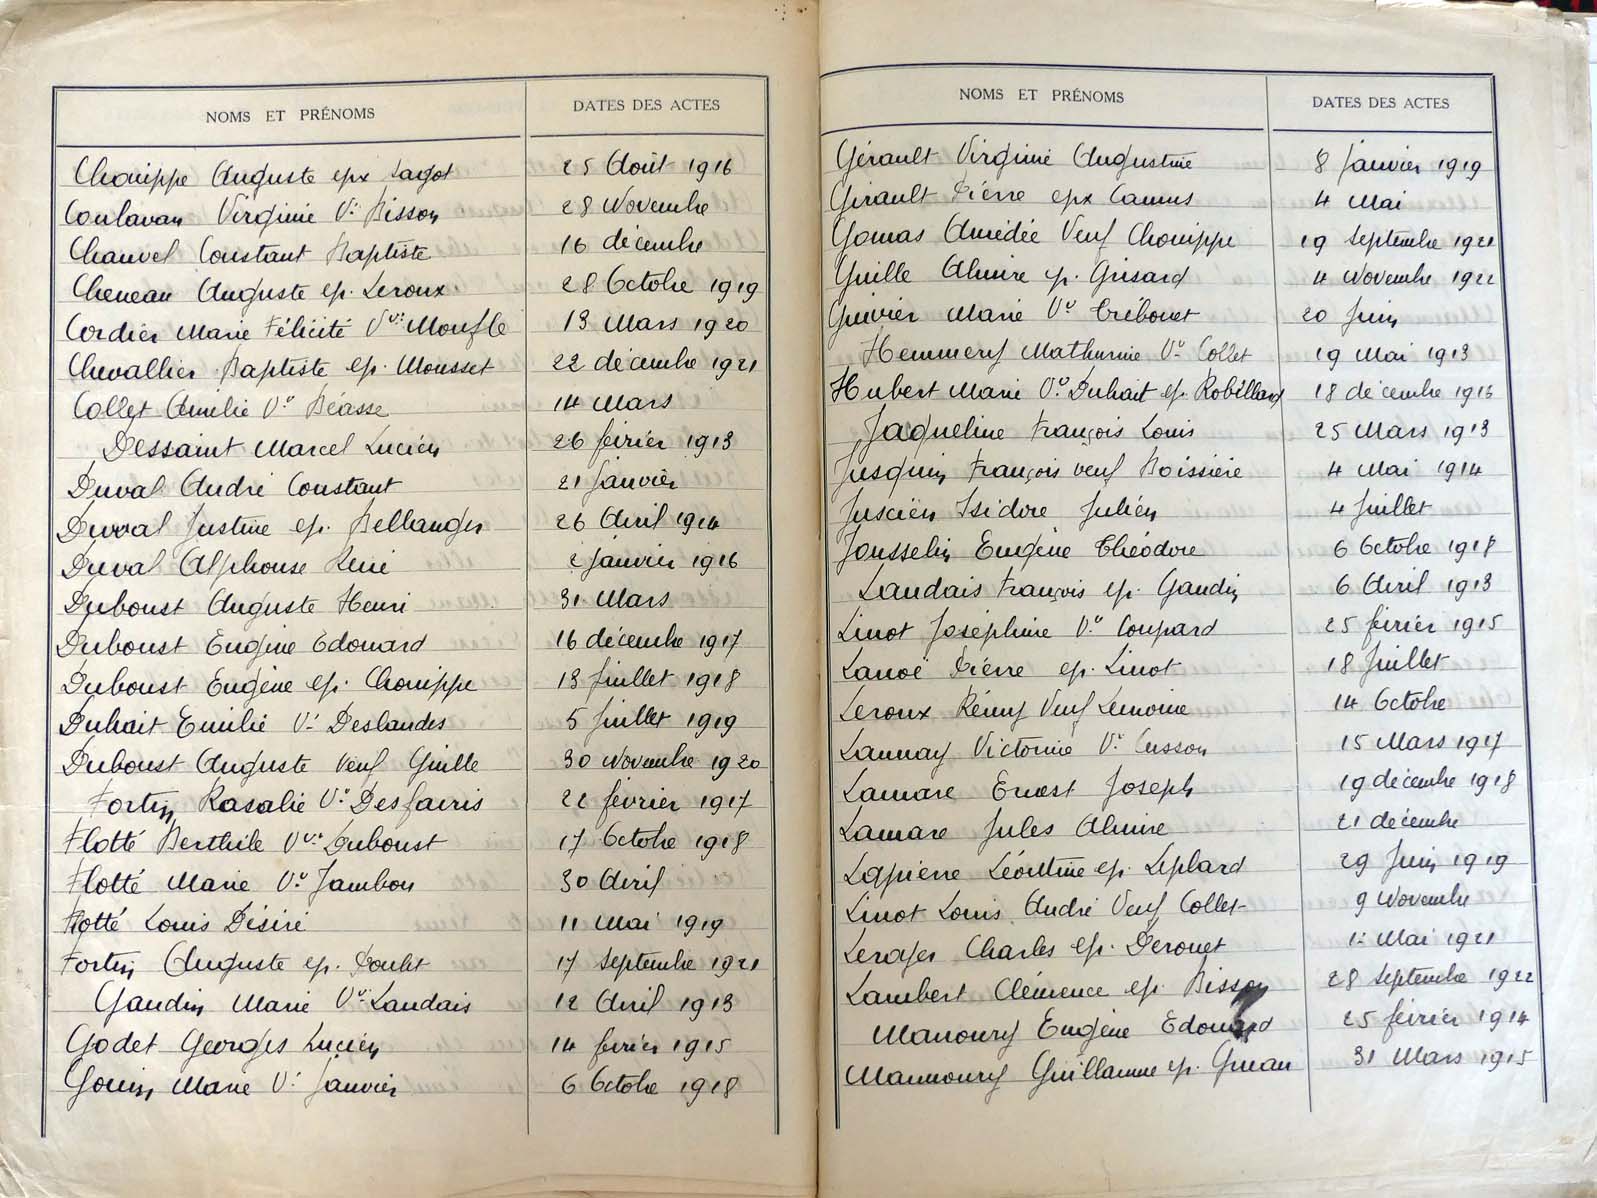 NOMS ET PRÉNOMS DATES DES ACTES
Chouippe Auguste epx Sagot 25 Août 1916
Coulavan Virginie Ve Bisson 28 Novembre
Chauvel Constant Baptiste 16 décembre
Cheneau Auguste ep. Leroux 28 Octobre 1919
Cordier Marie Félicité Vve Moufle 13 Mars 1920
Chevallier Baptiste ep. Mousset 22 décembre 1921
Collet Amélie Ve Béasse 14 Mars
Dessaint Marcel Lucien 26 février 1913
Duval André Constant 21 Janvier
Duval Justine ep. Bellanger 26 Avril 1914
Duval Alphonse René 2 Janvier 1916
Duboust Auguste Henri 31 Mars
Duboust Eugène Edouard 16 décembre 1917
Duboust Eugène ep. Chouippe 13 Juillet 1918
Duhait Emilie Ve Deslandes 5 Juillet 1919
Duboust Auguste Veuf Guille 30 Novembre 1920
Fortin Rasalie Ve Desfairis 22 février 1917
Flotté Berthile Vve Duboust 17 Octobre 1918
Flotté Marie Ve Jambon 30 Avril
Flotté Louis Désiré 11 Mai 1919
Fortin Auguste ep. Doulet 17 Septembre 1921
Gaudin Marie Ve Landais 12 Avril 1913
Godet Georges Lucien 14 février 1915
Gouin Marie Ve Janvier 6 Octobre 1918
NOMS ET PRÉNOMS DATES DES ACTES
Gérault Virginie Augustine 8 Janvier 1919
Girault Pierre epx Camus 4 Mai
Gomas Amédée Veuf Chouippe 19 Septembre 1921
Guille Almire ep. Grisard 4 Novembre 1922
Guivier Marie Ve Trébouet 20 Juin
Hemmery Mathurine Ve Collet 19 Mai 1913
Hubert Marie Ve Duhait ep. Robillard 18 décembre 1916
Jaqueline François Louis 25 Mars 1913
Jusquin François veuf Boissière 4 Mai 1914
Juscien Isidore Julien 4 Juillet
Jousselin Eugène Théodore 6 Octobre 1918
Landais François ep. Gaudin 6 Avril 1913
Linot Joséphine Ve Coupard 25 février 1915
Lanoë Pierre ep. Linot 18 Juillet
Leroux Rémy Veuf Lemoine 14 Octobre
Launay Victorine Ve Cusson 15 Mars 1917
Lamare Ernest Joseph 19 décembre 1918
Lamare Jules Almire 21 décembre
Lapierre Léontine ep. Leplard 29 Juin 1919
Linot Louis André Veuf Collet 9 Novembre
Leroyer Charles ep. Derouet 1er Mai 1921
Lambert Clémence ep. Bisson 28 Septembre 1922
Manoury Eugène Edouard 25 février 1914
Manmoury Guillaume ep. Gruau 31 Mars 1915